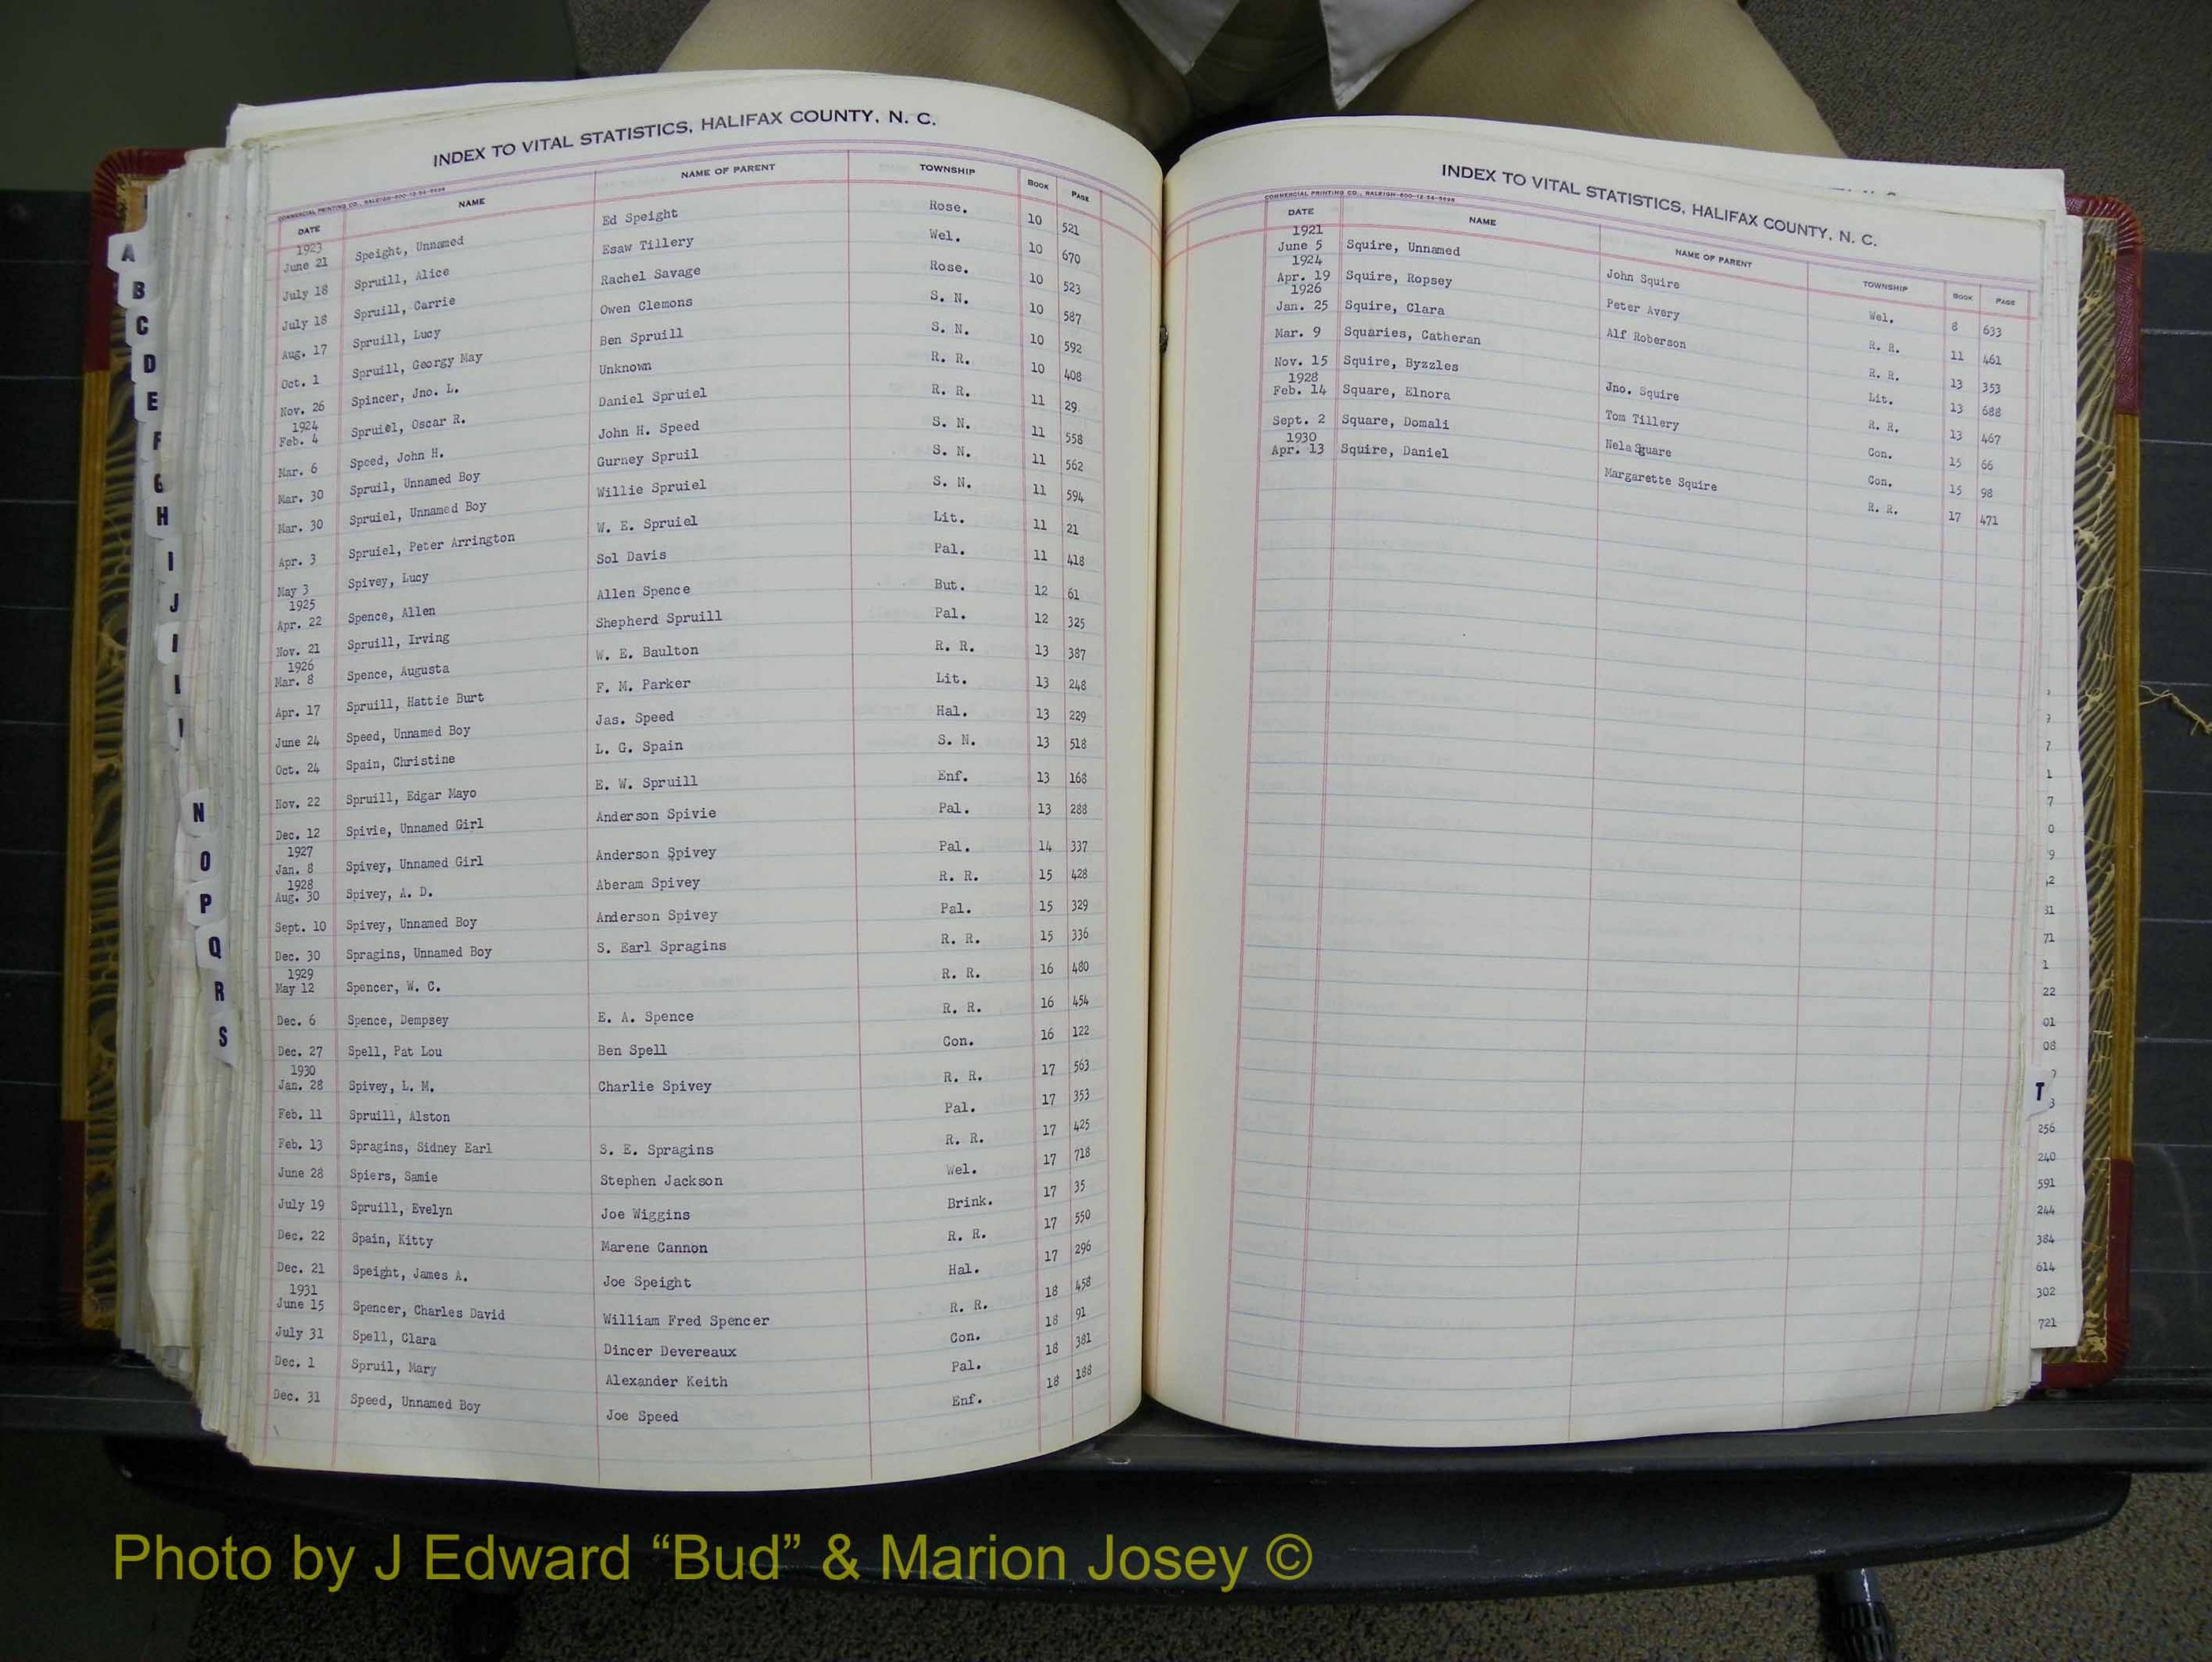 INDEX TO VITAL STATISTICS, HALIFAX COUNTY, N. C.
COMMERCIAL PRINTING CO., RALEIGH-600-12-34-5698
DATE NAME NAME OF PARENT TOWNSHIP BOOK PAGE
1923
June 21 Speight, Unnamed Ed Speight Rose. 10 521
July 18 Spruill, Alice Esaw Tillery Wel. 10 670
July 18 Spruill, Carrie Rachel Savage Rose. 10 523
Aug. 17 Spruill, Lucy Owen Clemons S. N. 10 587
Oct. 1 Spruill, Georgy May Ben Spruill S. N. 10 592
Nov. 26 Spincer, Jno. L. Unknown R. R. 10 408
1924
Feb. 4 Spruiel, Oscar R. Daniel Spruiel R. R. 11 29
Mar. 6 Speed, John H. John H. Speed S. N. 11 558
Mar. 30 Spruil, Unnamed Boy Gurney Spruil S. N. 11 562
Mar. 30 Spruiel, Unnamed Boy Willie Spruiel S. N. 11 594
Apr. 3 Spruiel, Peter Arrington W. E. Spruiel Lit. 11 21
May 3 Spivey, Lucy Sol Davis Pal. 11 418
1925
Apr. 22 Spence, Allen Allen Spence But. 12 61
Nov. 21 Spruill, Irving Shepherd Spruill Pal. 12 325
1926
Mar. 8 Spence, Augusta W. E. Baulton R. R. 13 387
Apr. 17 Spruill, Hattie Burt F. M. Parker Lit. 13 248
June 24 Speed, Unnamed Boy Jas. Speed Hal. 13 229
Oct. 24 Spain, Christine L. G. Spain S. N. 13 518
Nov. 22 Spruill, Edgar Mayo E. W. Spruill Enf. 13 168
Dec. 12 Spivie, Unnamed Girl Anderson Spivie Pal. 13 288
1927
Jan. 8 Spivey, Unnamed Girl Anderson Spivey Pal. 14 337
1928
Aug. 30 Spivey, A. D. Aberam Spivey R. R. 15 428
Sept. 10 Spivey, Unnamed Boy Anderson Spivey Pal. 15 329
Dec. 30 Spragins, Unnamed Boy S. Earl Spragins R. R. 15 336
1929
May 12 Spencer, W. C. R. R. 16 480
Dec. 6 Spence, Dempsey E. A. Spence R. R. 16 454
Dec. 27 Spell, Pat Lou Ben Spell Con. 16 122
1930
Jan. 28 Spivey, L. M. Charlie Spivey R. R. 17 563
Feb. 11 Spruill, Alston Pal. 17 353
Feb. 13 Spragins, Sidney Earl S. E. Spragins R. R. 17 425
June 28 Spiers, Samie Stephen Jackson Wel. 17 718
July 19 Spruill, Evelyn Joe Wiggins Brink. 17 35
Dec. 22 Spain, Kitty Marene Cannon R. R. 17 550
Dec. 21 Speight, James A. Joe Speight Hal. 17 296
1931
June 15 Spencer, Charles David William Fred Spencer R. R. 18 458
July 31 Spell, Clara Dincer Devereaux Con. 18 91
Dec. 1 Spruil, Mary Alexander Keith Pal. 18 381
Dec. 31 Speed, Unnamed Boy Joe Speed Enf. 18 188
A
B
C
D
E
F
G
H
I
J
N
O
P
Q
R
S
INDEX TO VITAL STATISTICS, HALIFAX COUNTY, N. C.
COMMERCIAL PRINTING CO., RALEIGH-600-12-34-5698
DATE NAME NAME OF PARENT TOWNSHIP BOOK PAGE
1921
June 5 Squire, Unnamed John Squire Wel. 8 633
1924
Apr. 19 Squire, Ropsey Peter Avery R. R. 11 461
1926
Jan. 25 Squire, Clara Alf Roberson R. R. 13 353
Mar. 9 Squaries, Catheran Lit. 13 688
Nov. 15 Squire, Byzzles Jno. Squire R. R. 13 467
1928
Feb. 14 Square, Elnora Tom Tillery Con. 15 66
Sept. 2 Square, Domali Nela Square Con. 15 98
1930
Apr. 13 Squire, Daniel Margarette Squire R. R. 17 471
7
1
7
0
9
71
1
22
01
08
T
256
240
591
244
384
614
302
721
Photo by J Edward “Bud” & Marion Josey ©